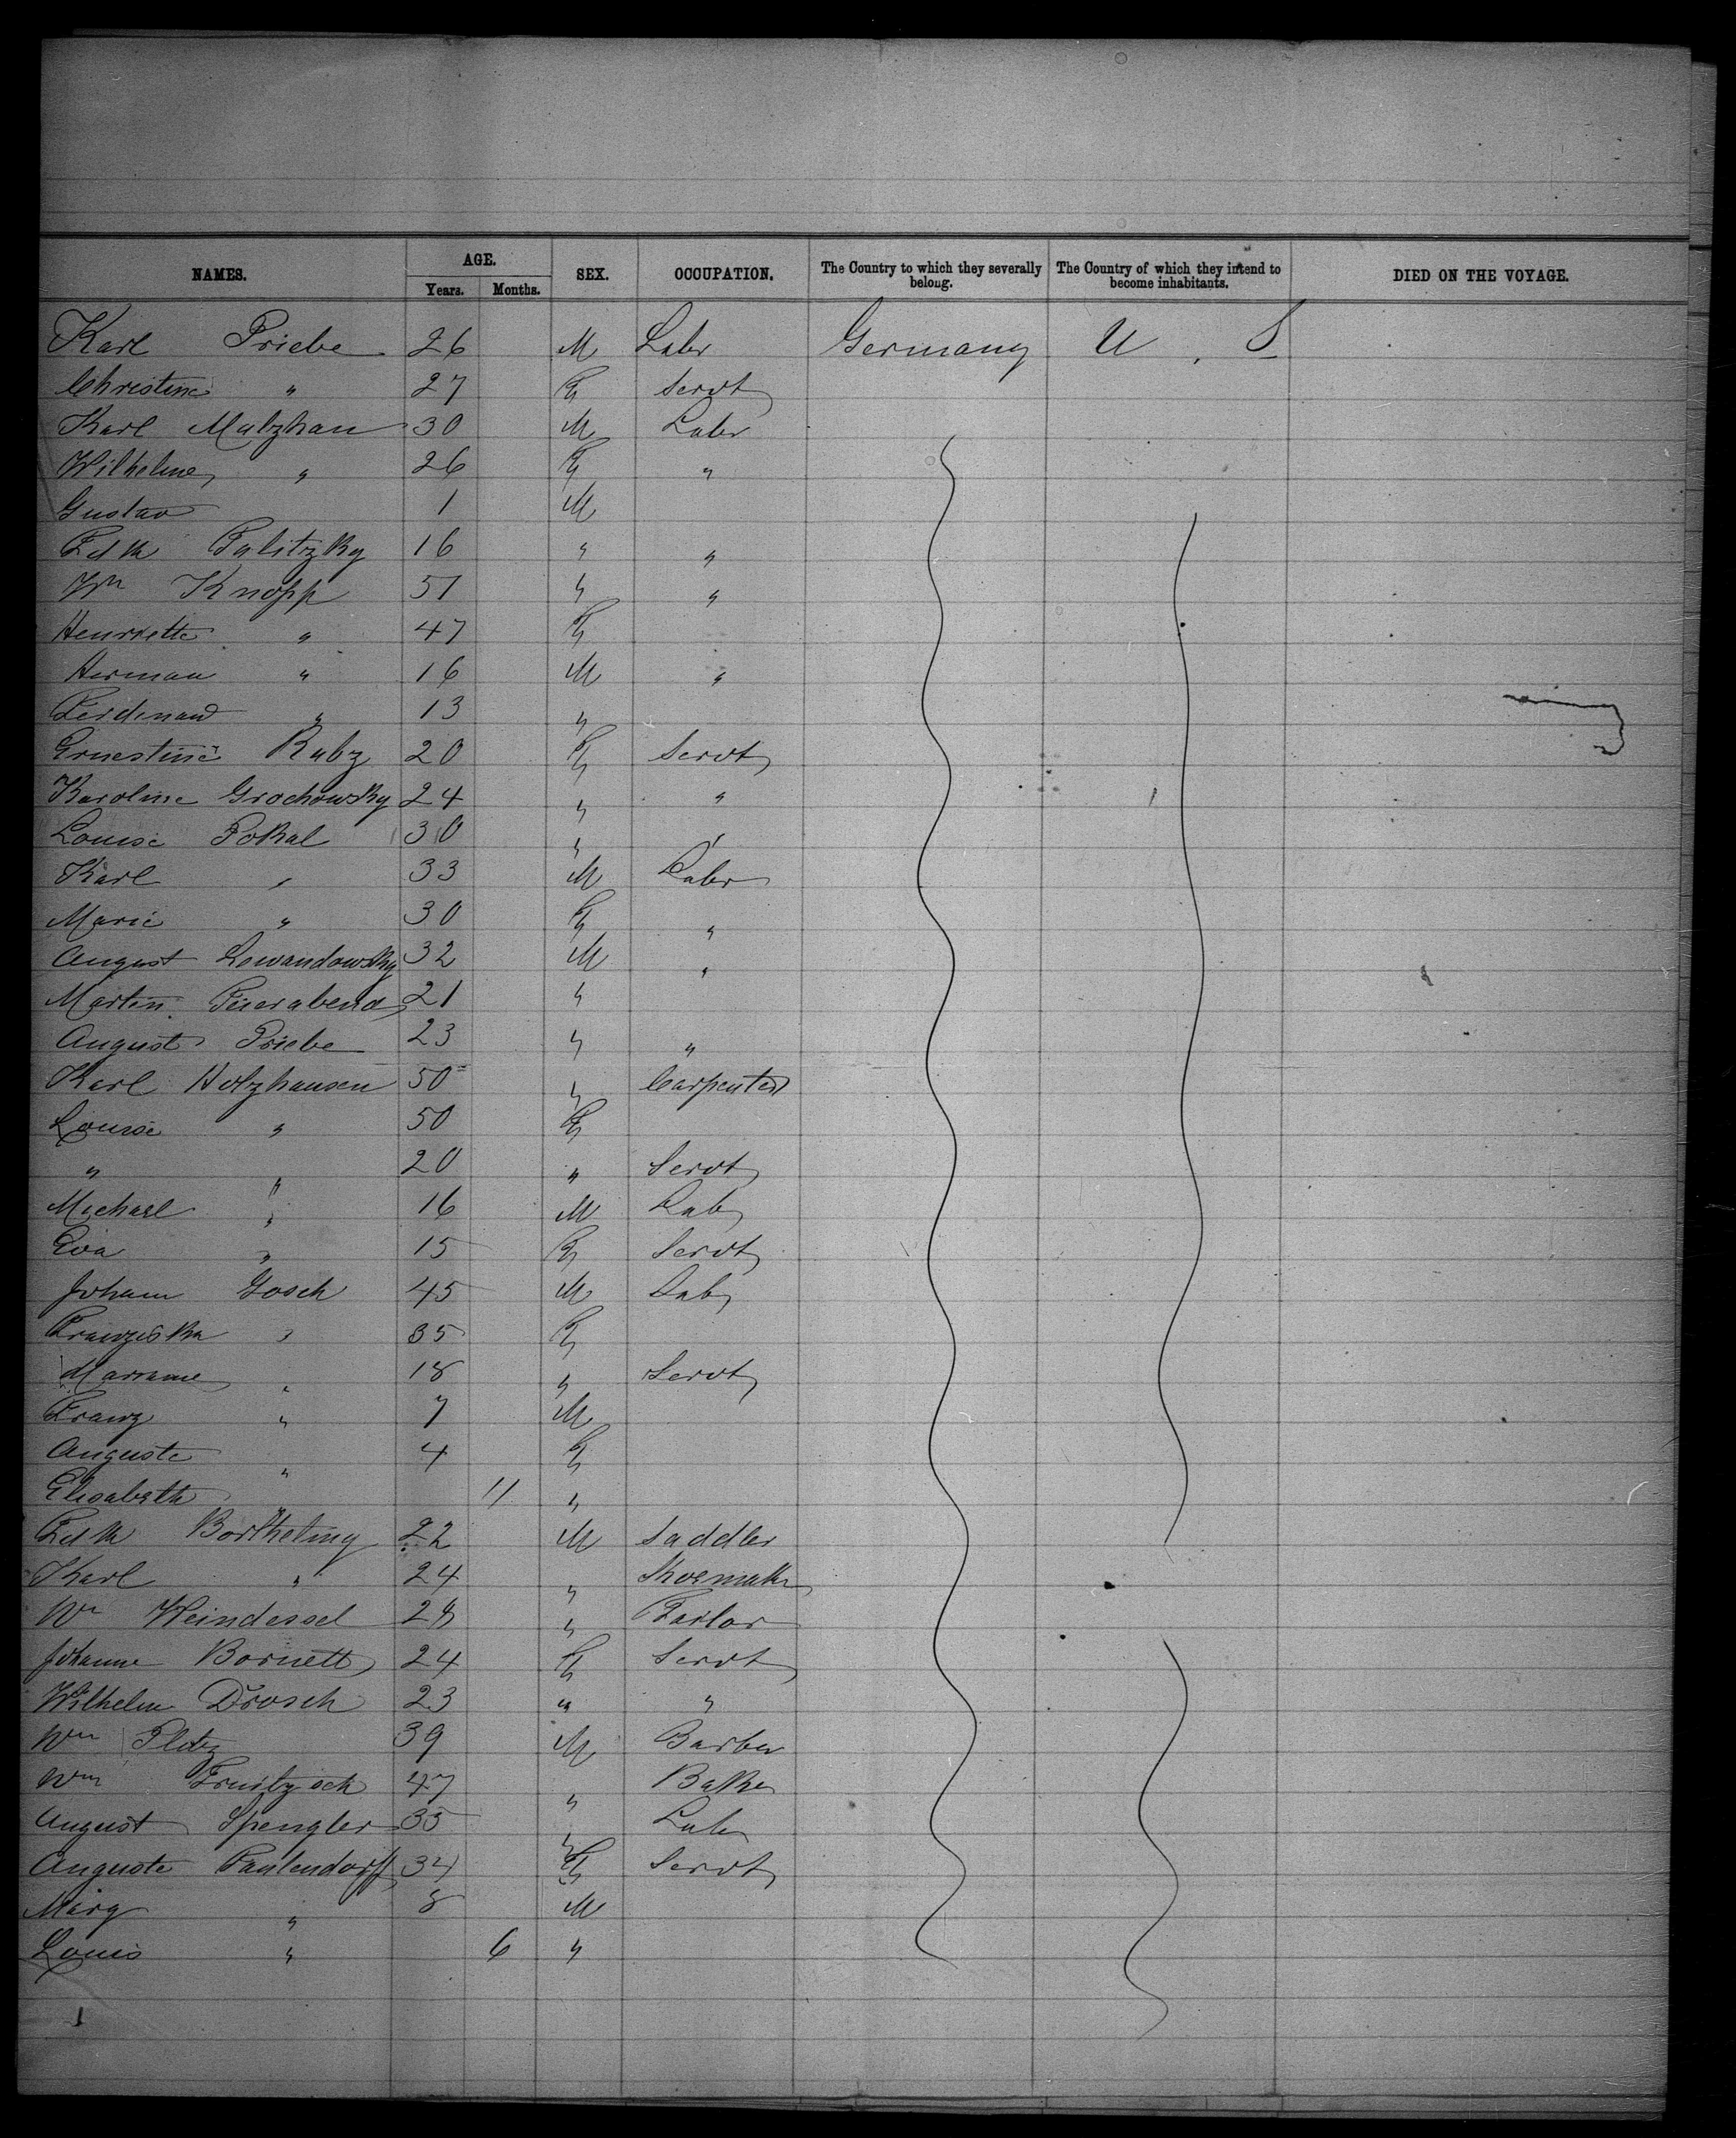 NAMES. AGE. SEX. OCCUPATION. The Country to which they severally belong. The Country of which they intend to become inhabitants. DIED ON THE VOYAGE.
Years. Months.
Karl Priebe 26 M Labr Germany U. S
Christine " 27 F Servt
Karl Malzhan 30 M Labr
Wilhelme " 26 F "
Gustav 1 M
Fdk Palitzky 16 " "
Wm Knopp 51 " "
Henriette " 47 F
Herman " 16 M "
Ferdinand " 13 "
Ernestine Rubz 20 F Servt
Karoline Grochowsky 24 " "
Louise Pokal 30 " "
Karl " 33 M Labr
Marie " 30 F "
August Lewandowsky 32 M "
Martin Feierabend 21 "
August Priebe 23 " "
Karl Holzhausen 50 " Carpenter
Louise " 50 F
" " 20 " Servt
Michael " 16 M Lab
Eva " 15 F Servt
Johann Gosch 45 M Lab
Franziska " 35 F
Marianne " 18 " Servt
Franz " 7 M
Auguste " 4 F
Elisabeth " 11 "
Fdk Bortheling 22 M Saddler
Karl " 24 " Shoemakr
Wm Weindessel 28 " Tailor
Johanne Bornett 24 F Servt
Wilhelm Drosch 23 " "
Wm Platz 39 M Barber
Wm 47 " Baker
August Spengler 35 " Labr
Auguste Paulendorff 34 F Servt
Marg " 8 M
Louis " 6 "